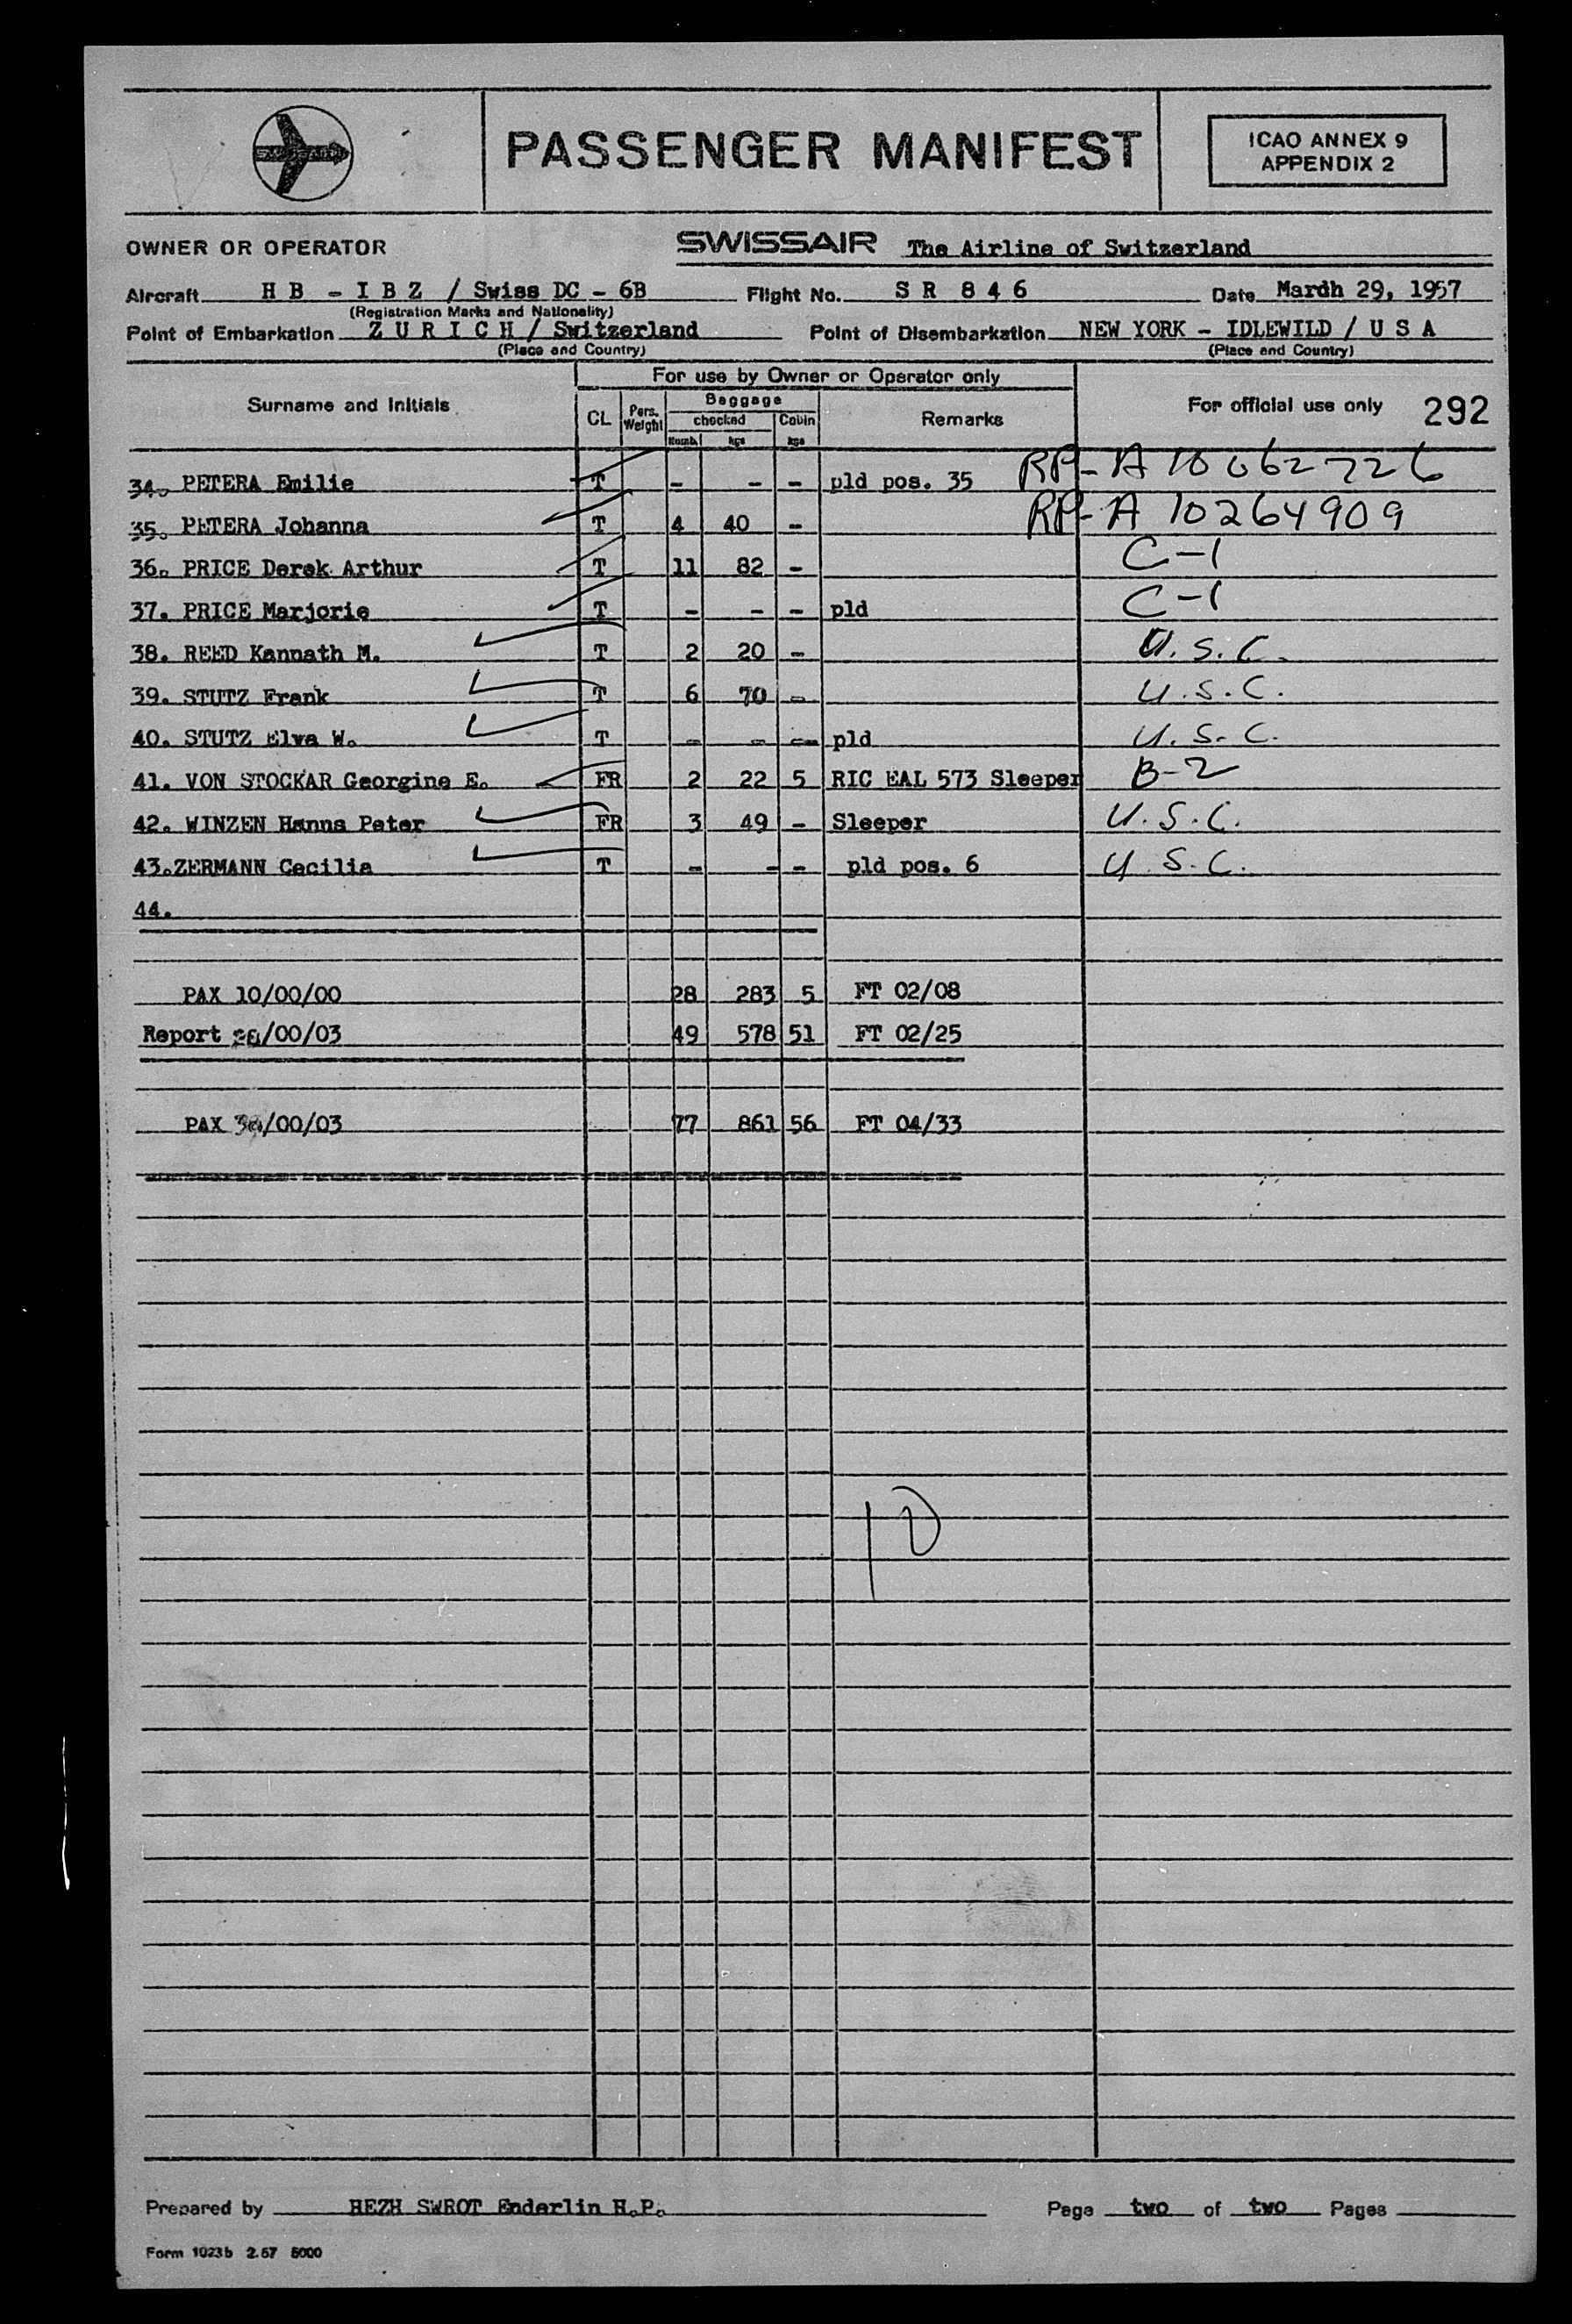 PASSENGER MANIFEST
ICAO ANNEX 9
APPENDIX 2
OWNER OR OPERATOR SWISSAIR The Airline of Switzerland
Aircraft H B - I B Z / Swiss DC - 6B Flight No. S R 8 4 6 Date Mardh 29, 1957
(Registration Marks and Nationality)
Point of Embarkation Z U R I C H / Switzerland Point of Disembarkation NEW YORK - IDLEWILD / U S A
(Place and Country) (Place and Country)
For use by Owner or Operator only
Surname and Initials CL Pers. Weight Baggage checked Numb. kgs Cabin kgs Remarks For official use only 292
34. PETERA Emilie T - - - pld pos. 35 RP-A 10062726
35. PETERA Johanna T 4 40 - RP-A 10264909
36. PRICE Derek Arthur T 11 82 - C-1
37. PRICE Marjorie T - - - pld C-1
38. REED Kannath M. T 2 20 - U.S.C.
39. STUTZ Frank T 6 70 - U.S.C.
40. STUTZ Elva W. T - - - pld U.S.C.
41. VON STOCKAR Georgine E. FR 2 22 5 RIC EAL 573 Sleeper B-2
42. WINZEN Hanns Peter FR 3 49 - Sleeper U.S.C.
43.ZERMANN Cecilia T - - - pld pos. 6 U.S.C.
44.
PAX 10/00/00 28 283 5 FT 02/08
Report /00/03 49 578 51 FT 02/25
PAX /00/03 77 861 56 FT 04/33
10
Prepared by HEZH SWROT Enderlin H.P. Page two of two Pages
Form 1023b 2.57 5000